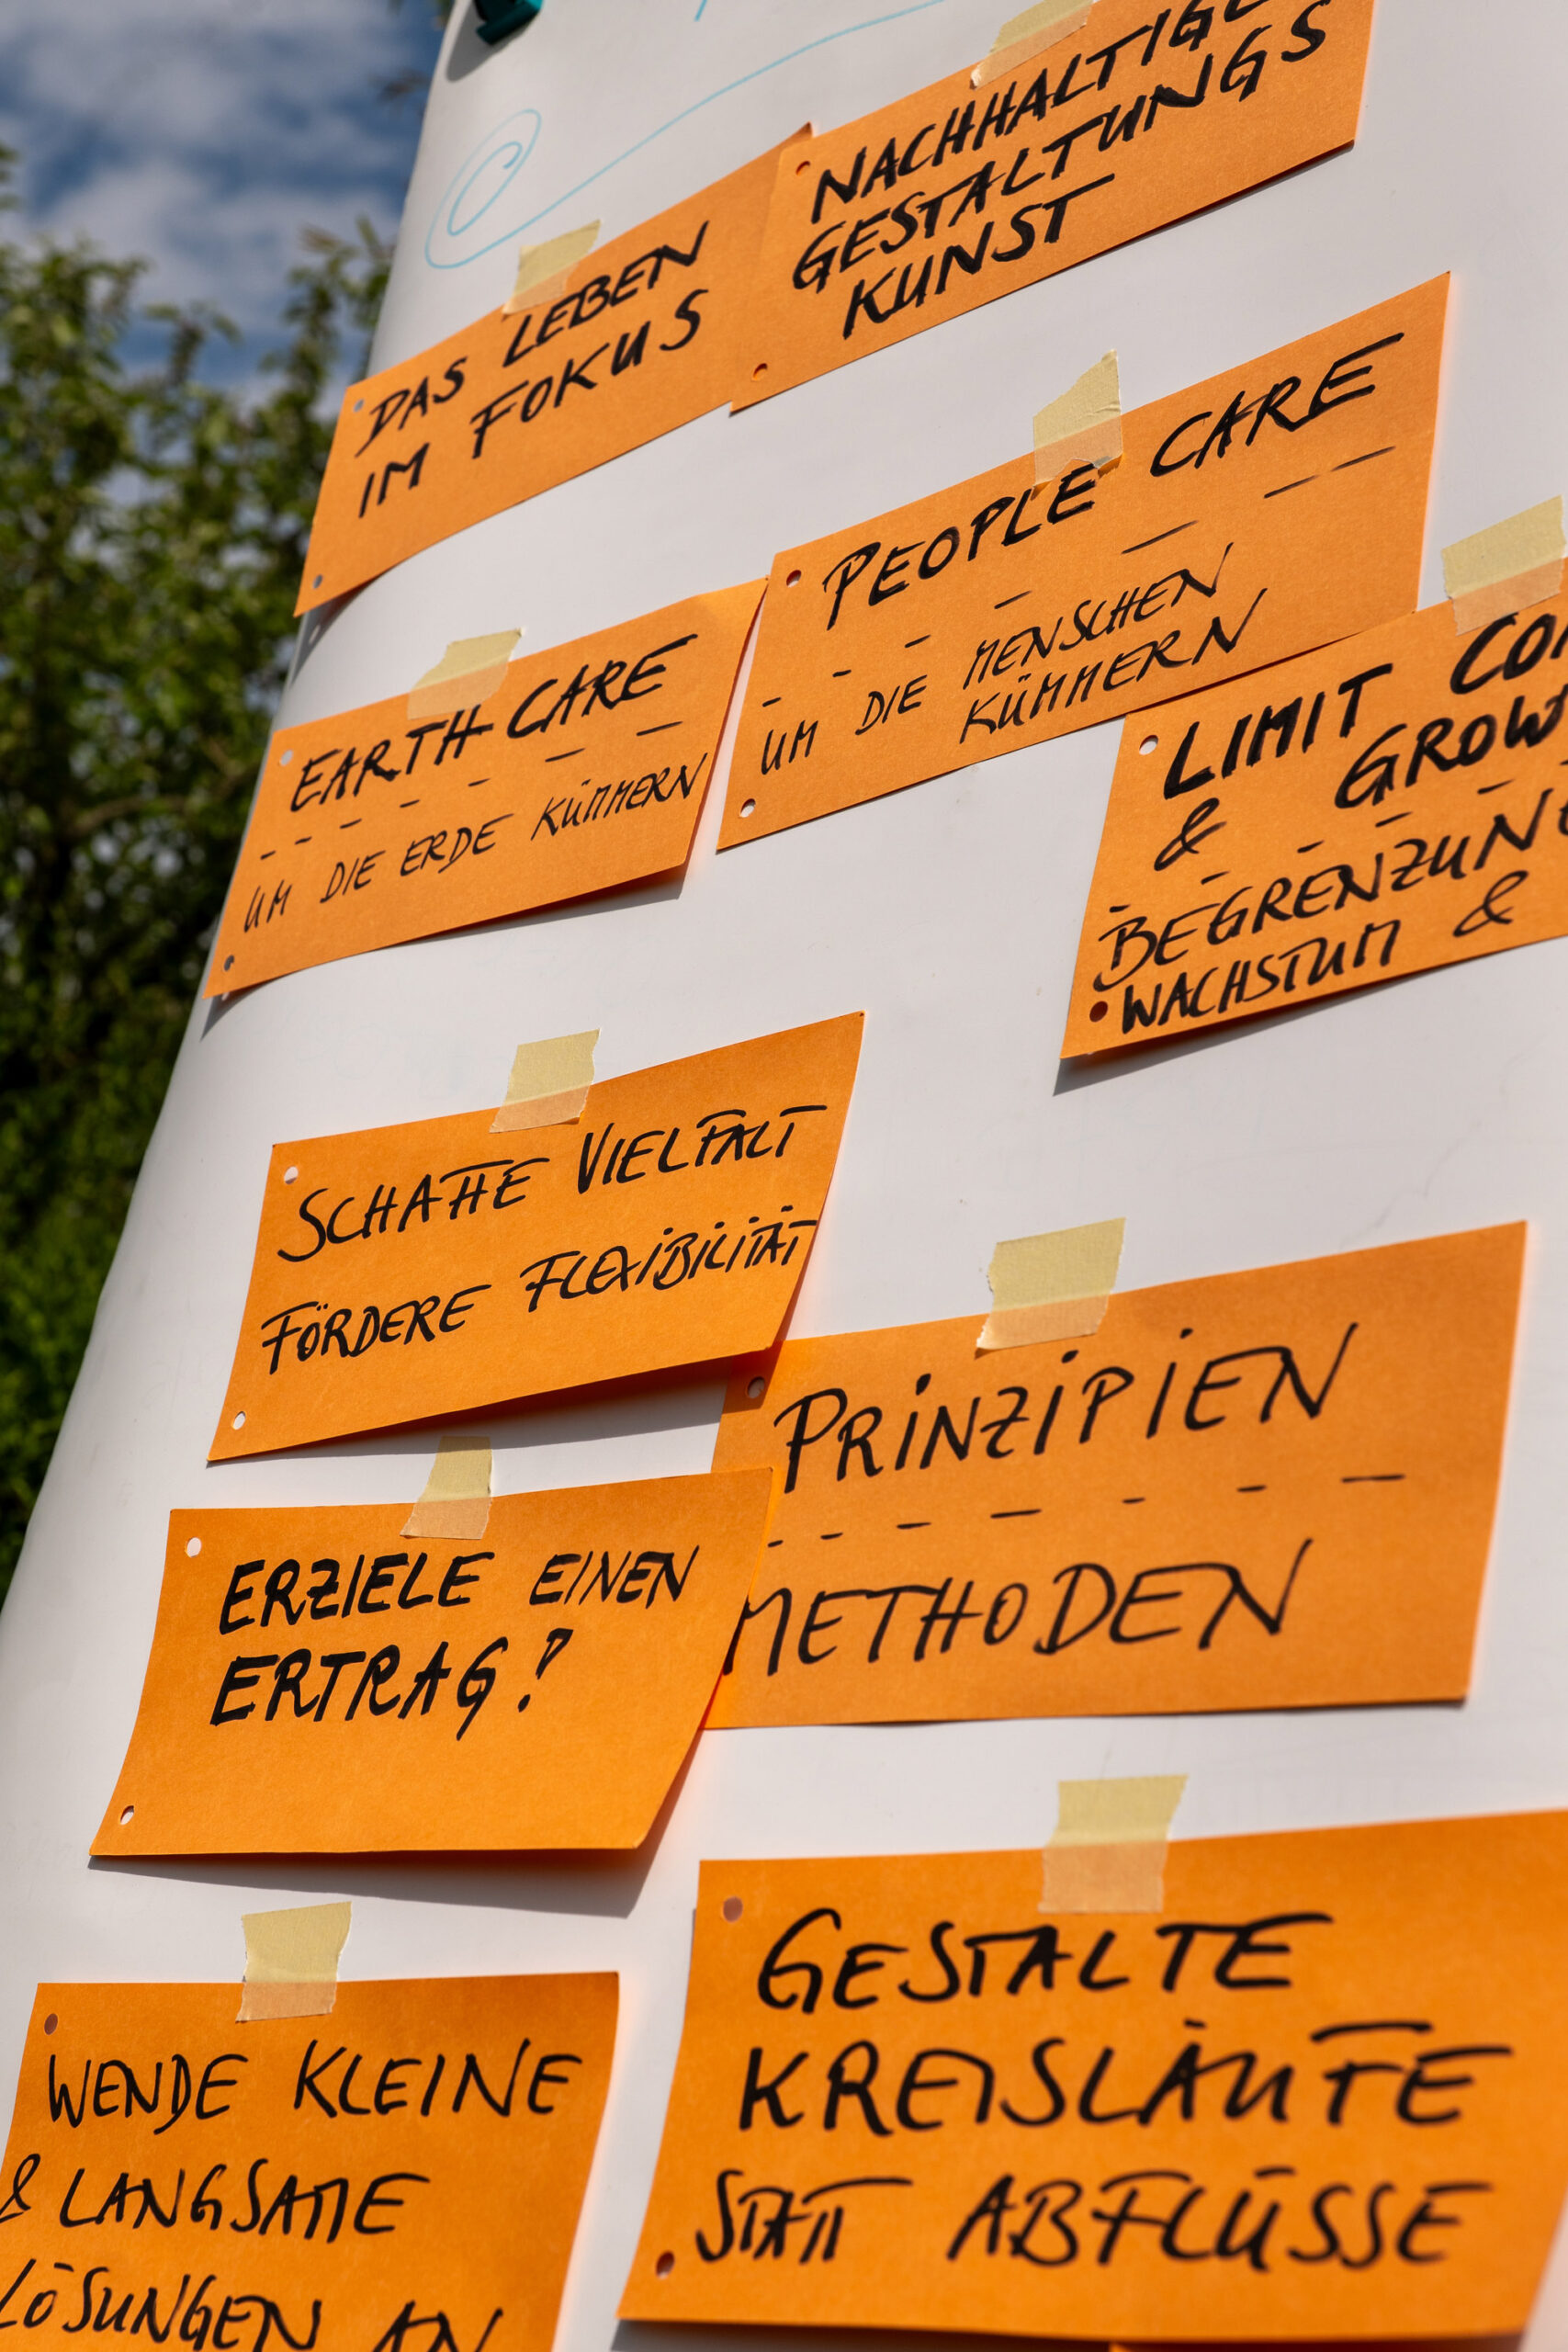 NACHHALTIGE
GESTALTUNGS
KUNST
DAS LEBEN
IM FOKUS
PEOPLE CARE
UM DIE MENSCHEN
KÜMMERN
EARTH CARE
UM DIE ERDE KÜMMERN
LIMIT
& GROW
BEGRENZUN
WACHSTUM &
SCHAFFE VIELFALT
FÖRDERE FLEXIBILITÄT
PRINZIPIEN
METHODEN
ERZIELE EINEN
ERTRAG!
GESTALTE
KREISLÄUFE
STATT ABFLÜSSE
WENDE KLEINE
& LANGSAME
LÖSUNGEN AN